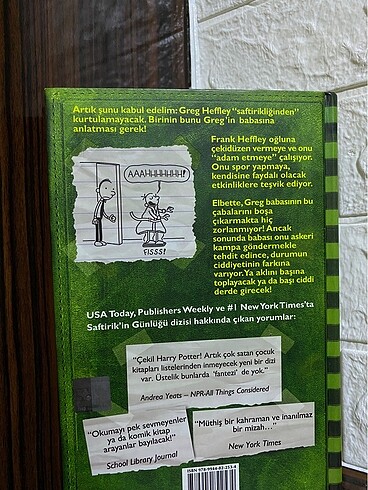 Artık şunu kabul edelim: Greg Heffley "saftirikliğinden"
kurtulamayacak. Birinin bunu Greg'in babasına
anlatması gerek!
Frank Heffley oğluna
çekidüzen vermeye ve onu
"adam etmeye" çalışıyor.
Onu spor yapmaya,
kendisine faydalı olacak
etkinliklere teşvik ediyor.
AAAHHHHHHH!
FISSS!
Elbette, Greg babasının bu
çabalarını boşa
çıkarmakta hiç
zorlanmıyor! Ancak
sonunda babası onu askeri
kampa göndermekle
tehdit edince, durumun
ciddiyetinin farkına
varıyor. Ya aklını başına
toplayacak ya da başı ciddi
derde girecek!
USA Today, Publishers Weekly ve #1 New York Times'ta
Saftirik'in Günlüğü dizisi hakkında çıkan yorumlar:
"Çekil Harry Potter! Artık çok satan çocuk
kitapları listelerinden inmeyecek yeni bir dizi
var. Üstelik bunlarda 'fantezi' de yok."
Andrea Yeats – NPR-All Things Considered
"Okumayı pek sevmeyenler
ya da komik kitap
arayanlar bayılacak!"
School Library Journal
"Müthiş bir kahraman ve inanılmaz
bir mizah..."
New York Times
ISBN 978-9944-82-253-4